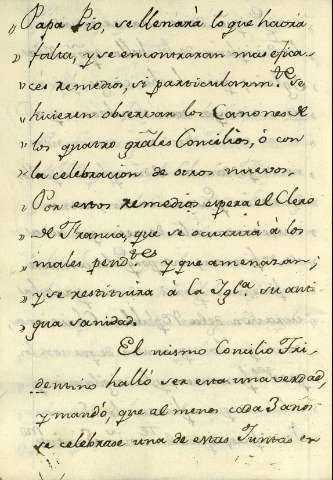 " Papa Pio, se llenará lo que hacia
" falta, y se encontraran mas efica
" ces remedios, si particularm.te se
" hicieren observar los Canones de
" los quatro grãles Concilios, ó con
" la celebracion de otros nuevos.
" Por estos remedios espera el Clero
" de Francia, que se ocurrirá á los
" males pend.tes y que amenazan;
" y se restituira à la Igl.a su anti
" gua sanidad.
El mismo Concilio Tri
dentino halló ser esta una verdad
y mandó, que al menos cada 3 años
se celebrase una de estas Juntas en